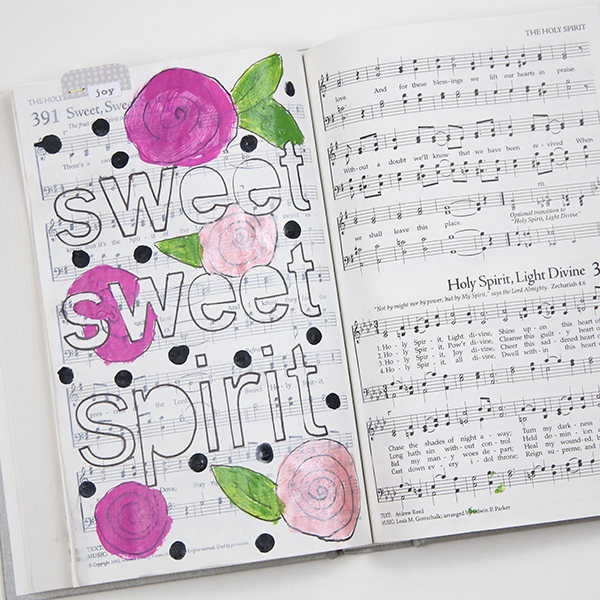 THE HOLY
joy
391 Sweet, Swee
The fruit
There's a
sweet
sweet
spirit
Dove,
TEXT:
MUSIC:
THE HOLY SPIRIT
love. And for these bless-ings we lift our hearts in praise.
With-out a doubt we'll know that we have been re-vived When
rit.
we shall leave this place.
Optional transition to
"Holy Spirit, Light Divine"
Holy Spirit, Light Divine 3
"Not by might nor by power, but by My Spirit," says the Lord Almighty. Zechariah 4:6
1. Ho - ly Spir - it, Light di-vine, Shine up - on this heart of
2. Ho - ly Spir - it, Pow'r di-vine, Cleanse this guilt - y heart
3. Ho - ly Spir - it, Joy di-vine, Cheer this sad - dened heart of
4. Ho - ly Spir - it, all di-vine, Dwell with-in this heart
Chase the shades of night a - way; Turn my dark-ness
Long hath sin with-out con-trol Held do-min-ion
Bid my man-y woes de-part; Heal my wound-ed, b
Cast down ev-'ry i-dol throne; Reign su-preme, and
TEXT: Andrew Reed
MUSIC: Louis M. Gottschalk; arranged by Edwin P. Parker